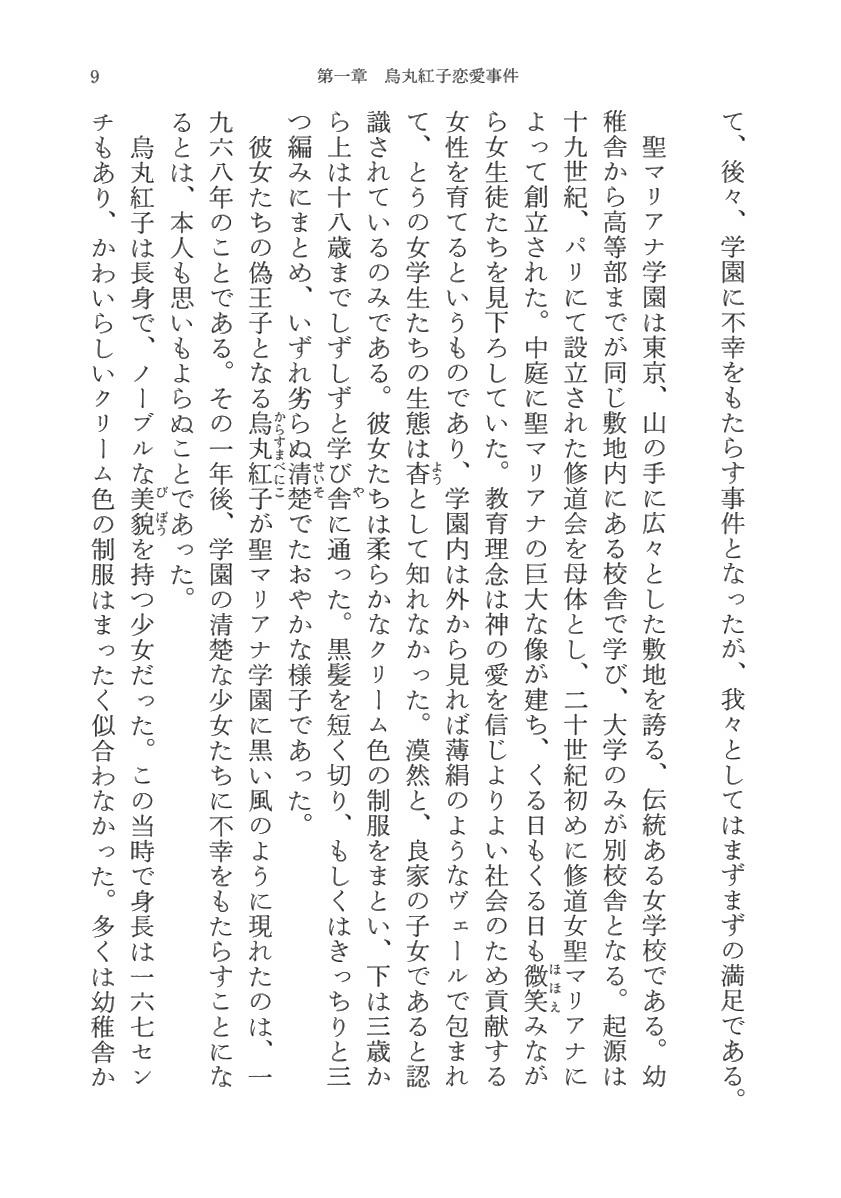 9
第一章　烏丸紅子恋愛事件
て、後々、学園に不幸をもたらす事件となったが、我々としてはまずまずの満足である。
聖マリアナ学園は東京、山の手に広々とした敷地を誇る、伝統ある女学校である。幼
稚舎から高等部までが同じ敷地内にある校舎で学び、大学のみが別校舎となる。起源は
十九世紀、パリにて設立された修道会を母体とし、二十世紀初めに修道女聖マリアナに
よって創立された。中庭に聖マリアナの巨大な像が建ち、くる日もくる日も微笑みなが
ら女生徒たちを見下ろしていた。教育理念は神の愛を信じよりよい社会のため貢献する
女性を育てるというものであり、学園内は外から見れば薄絹のようなヴェールで包まれ
て、とうの女学生たちの生態は杳として知れなかった。漠然と、良家の子女であると認
識されているのみである。彼女たちは柔らかなクリーム色の制服をまとい、下は三歳か
ら上は十八歳までしずしずと学び舎に通った。黒髪を短く切り、もしくはきっちりと三
つ編みにまとめ、いずれ劣らぬ清楚でたおやかな様子であった。
彼女たちの偽王子となる烏丸紅子が聖マリアナ学園に黒い風のように現れたのは、一
九六八年のことである。その一年後、学園の清楚な少女たちに不幸をもたらすことにな
るとは、本人も思いもよらぬことであった。
烏丸紅子は長身で、ノーブルな美貌を持つ少女だった。この当時で身長は一六七セン
チもあり、かわいらしいクリーム色の制服はまったく似合わなかった。多くは幼稚舎か